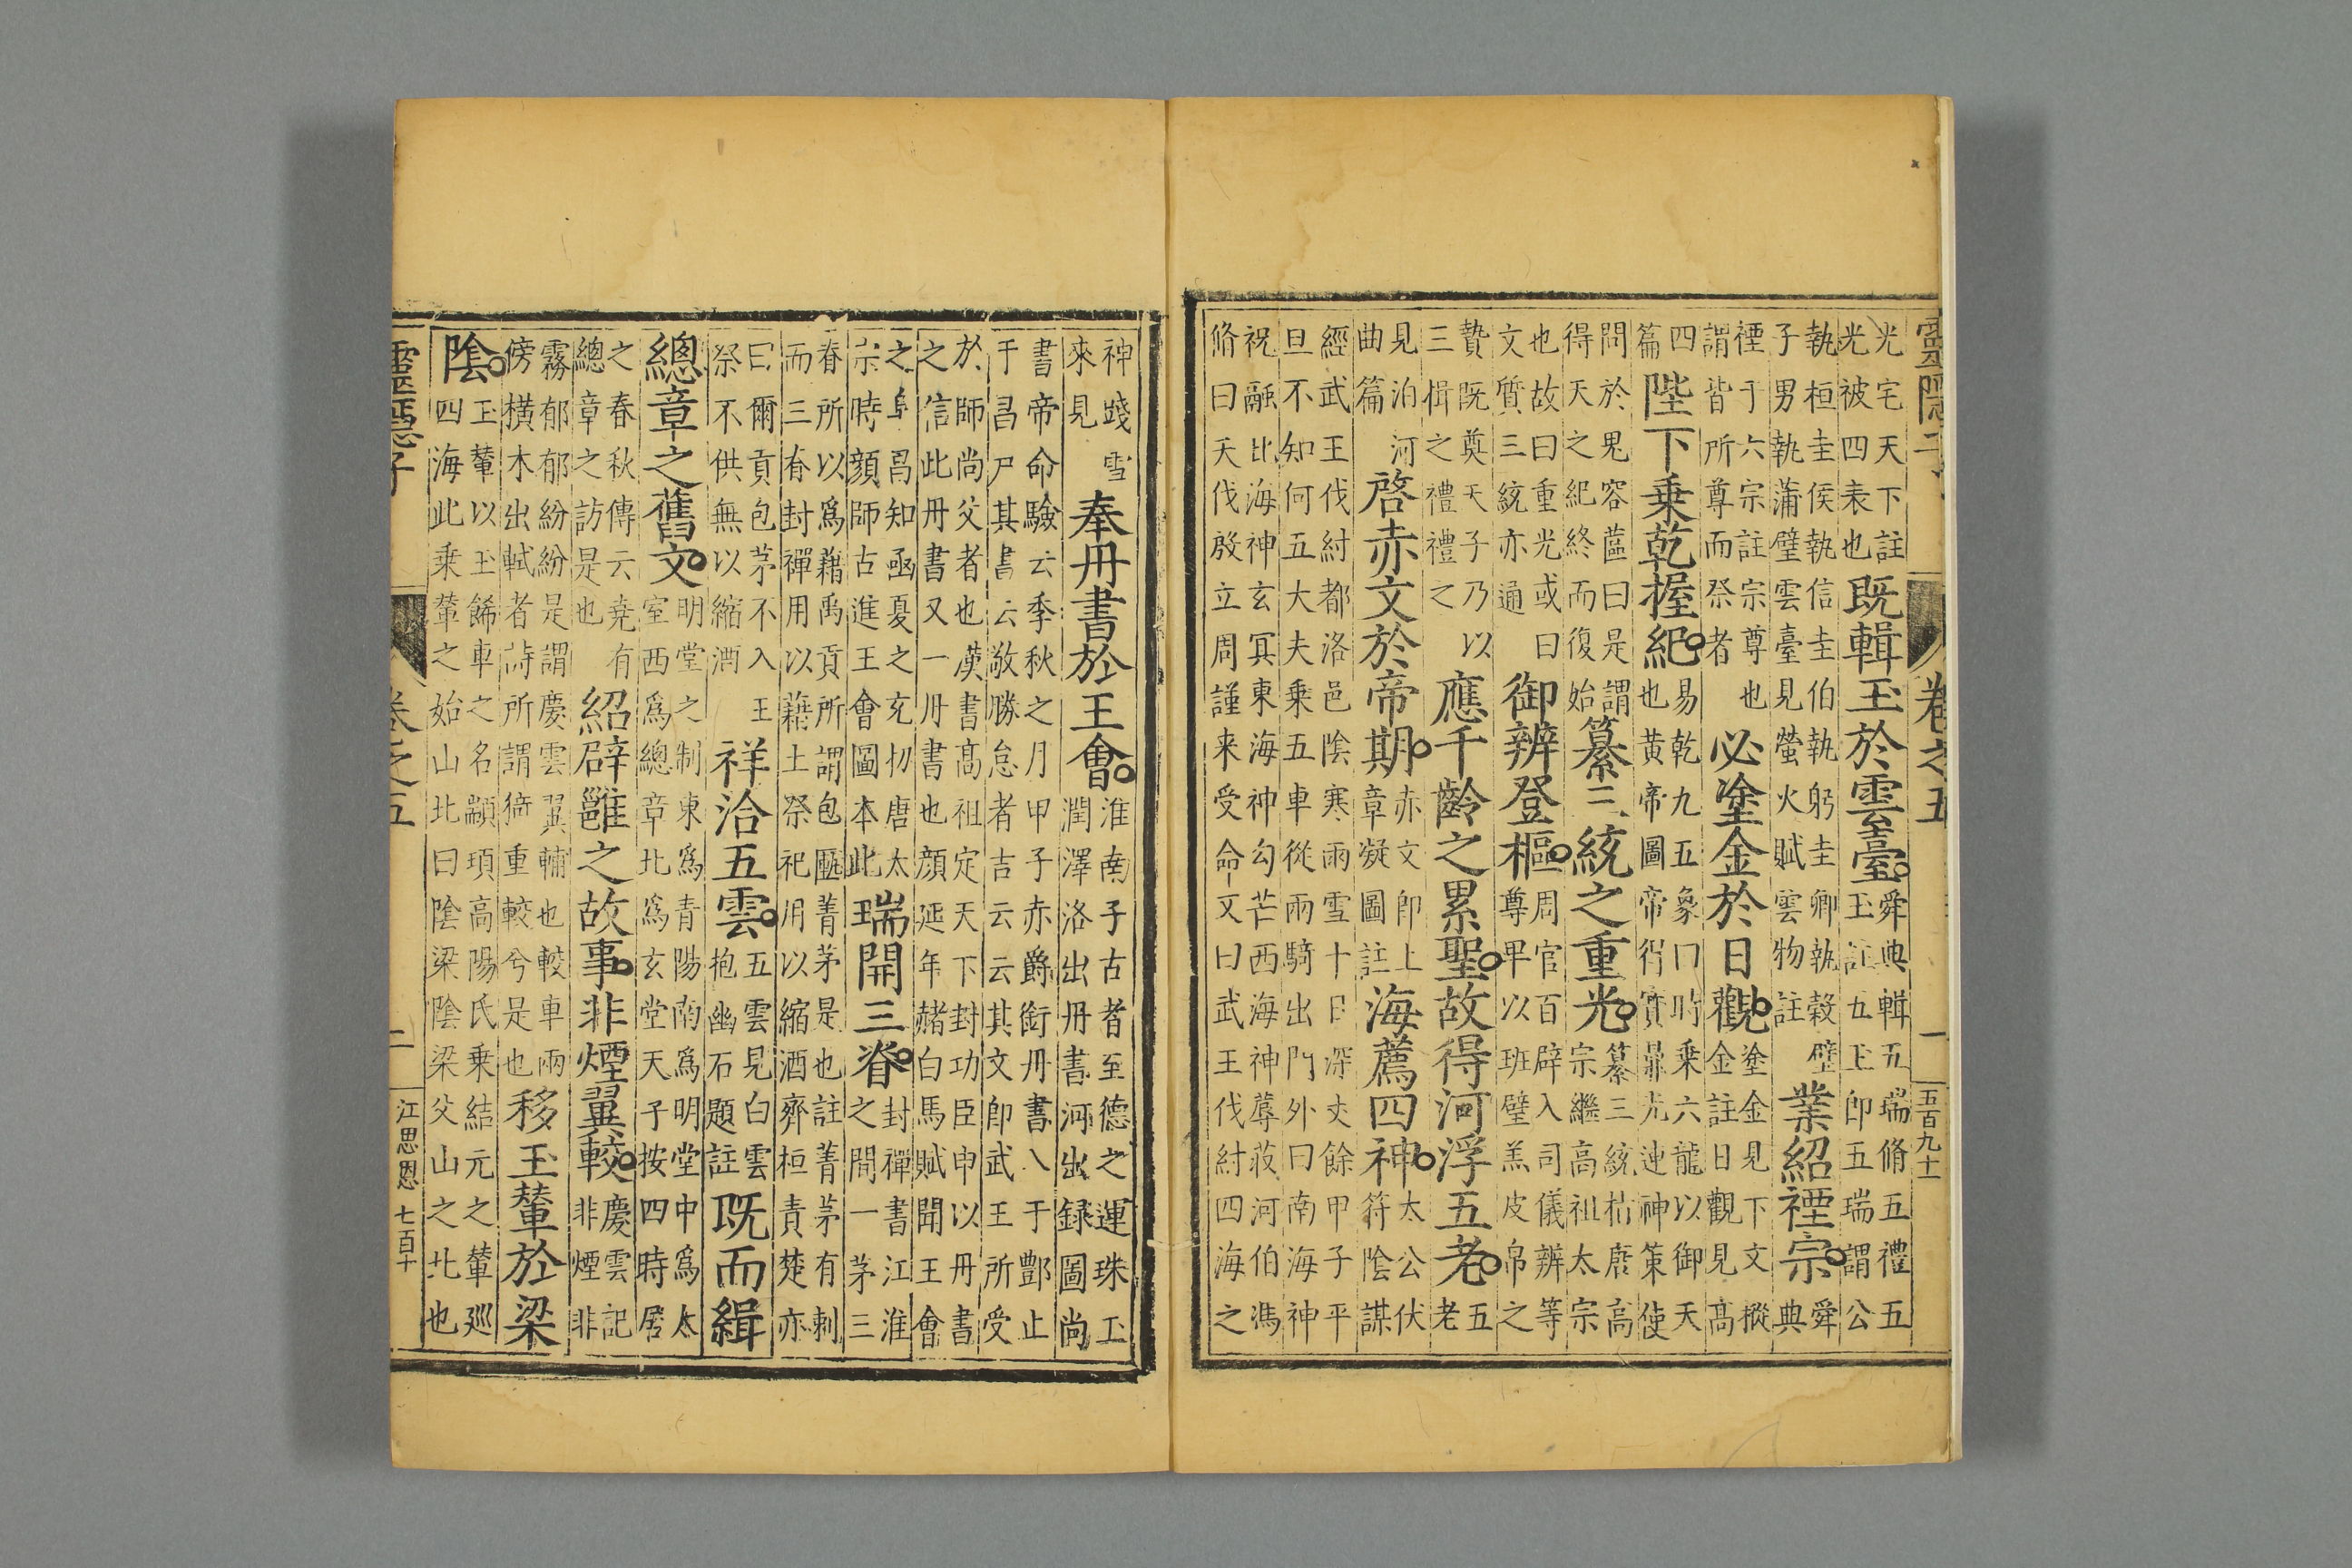 靈隱子
卷之五
一
五百九十一
光宅天下註
光被四表也
既輯玉於雲臺
舜典輯五瑞脩五禮五
玉註五玉卽五瑞謂公
執桓圭侯執信圭伯執躬圭卿執穀璧
子男執蒲璧雲臺見螢火賦雲物註
業紹禋宗
舜
典
禋于六宗註宗尊也
謂皆所尊而祭者
必塗金於日觀
塗金見下文樅
金註日觀見高
四
篇
陛下乗乾握紀
易乾九五象曰時乗六龍以御天
也黄帝圖帝得寳鼎先迎神策使
問於鬼容蓲曰是謂
得天之紀終而復始
纂三統之重光
纂三統枯唐高
宗繼高祖太宗
也故曰重光或曰
文質三統亦通
御辨登樞
周官百辟入司儀辨等
尊卑以班璧羔皮帛之
贄既奠天子乃以
三楫之禮禮之
應千齡之累聖故得河浮五老
五
老
見泊河
曲篇
啓赤文於帝期
赤文卽上
章凝圖註
海薦四神
太公伏
符陰謀
經武王伐紂都洛邑陰寒雨雪十日深丈餘甲子平
旦不知何五大夫乗五車從兩騎出門外曰南海神
祝融北海神玄冥東海神勾芒西海神蓐收河伯馮
脩曰天伐殷立周謹来受命文曰武王伐紂四海之
神踐雪
來見
奉丹書於王會
淮南子古者至德之運珠玉
潤澤洛出丹書河出録圖尚
書帝命驗云季秋之月甲子赤爵銜丹書入于酆止
于昌戸其書云敬勝怠者吉云云其文卽武王所受
於師尚父者也漢書高祖定天下封功臣申以丹書
之信此丹書又一丹書也顔延年赭白馬賦聞王會
之阜昌知函夏之充牣唐太
宗時顔師古進王會圖本此
瑞開三脊
封禪書江淮
之間一茅三
脊所以爲藉禹貢所謂包匭菁茅是也註菁茅有刺
而三脊封禪用以藉土祭祀用以縮酒齊桓責楚亦
曰爾貢包茅不入王
祭不供無以縮酒
祥洽五雲
五雲見白雲
抱幽石題註
既而緝
總章之舊文
明堂之制東爲青陽南爲明堂中爲太
室西爲總章北爲玄堂天子按四時居
之春秋傳云堯有
總章之訪是也
紹辟雝之故事非煙翼較
慶雲記
非煙非
霧郁郁紛紛是謂慶雲翼輔也較車兩
傍横木出軾者詩所謂猗重較兮是也
移玉輦於梁
陰
玉輦以玉餙車之名顓頊高陽氏乗結元之輦廵
四海此乗輦之始山北曰陰梁陰梁父山之北也
靈隱子
卷之五
二
江思恩 七百十